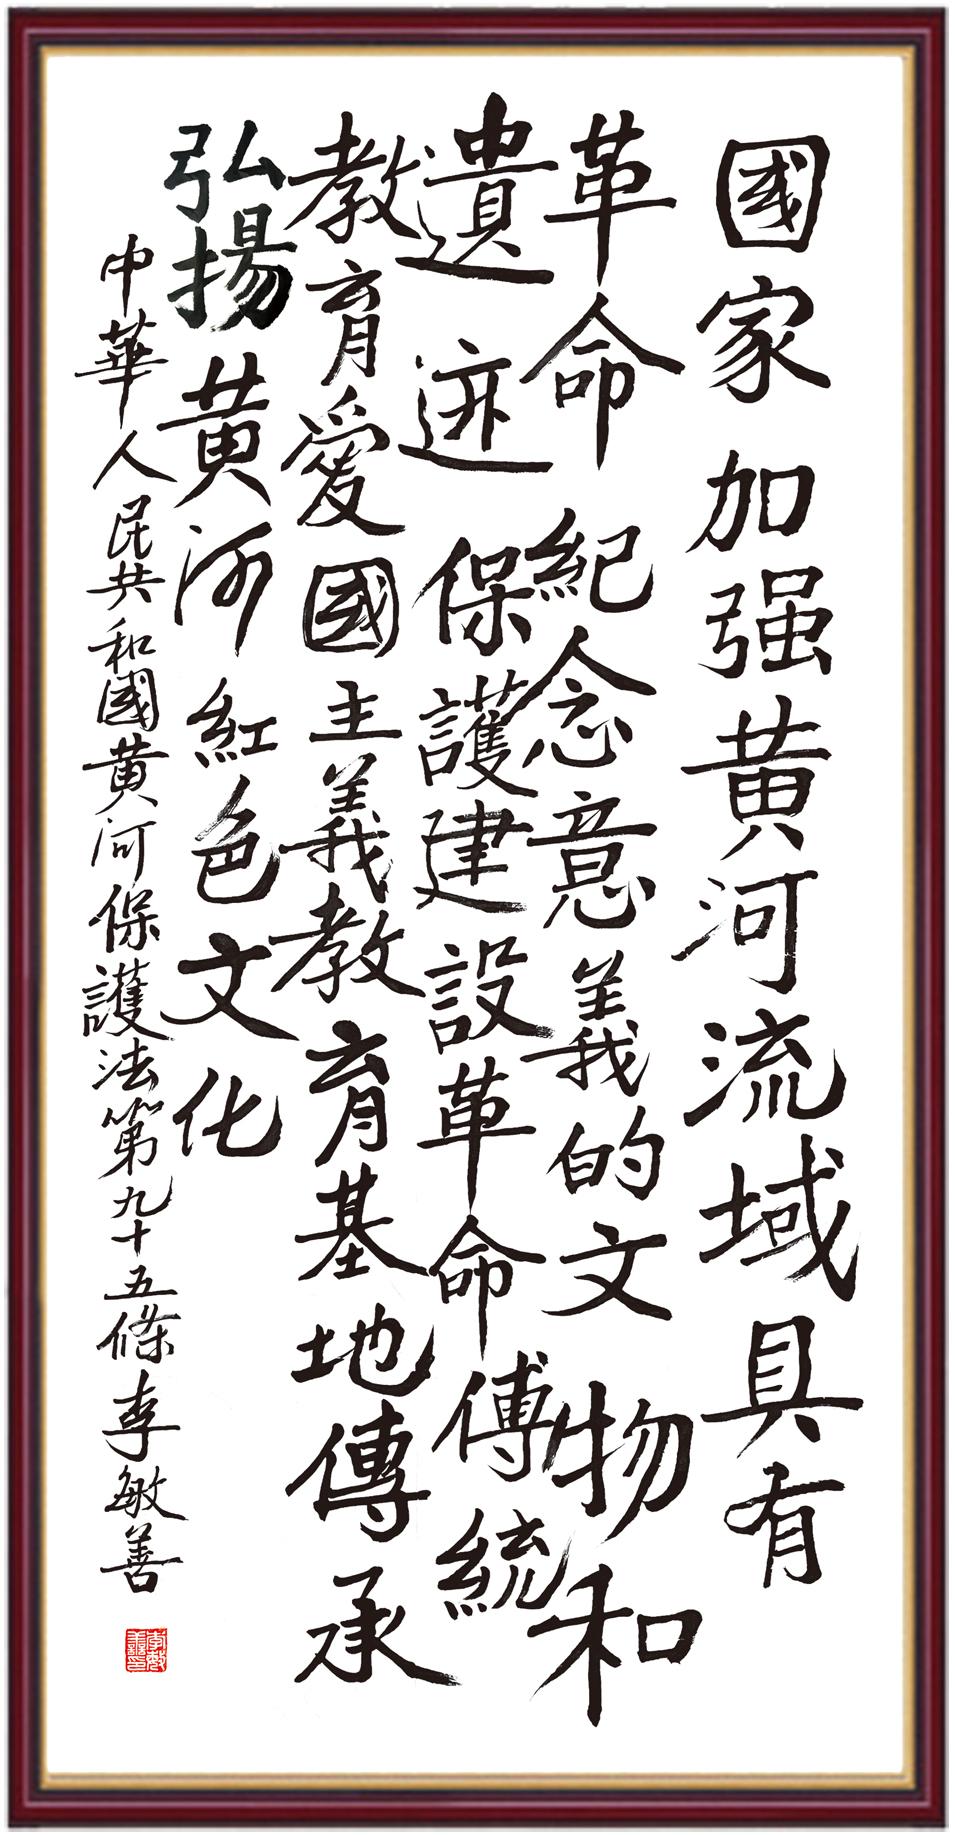 國家加强黄河流域具有
革命紀念意義的文物和
遺迹保護建設革命傳統
教育愛國主義教育基地傳承
弘揚黄河紅色文化
中華人民共和國黄河保護法第九十五條李敏善
李敏善印